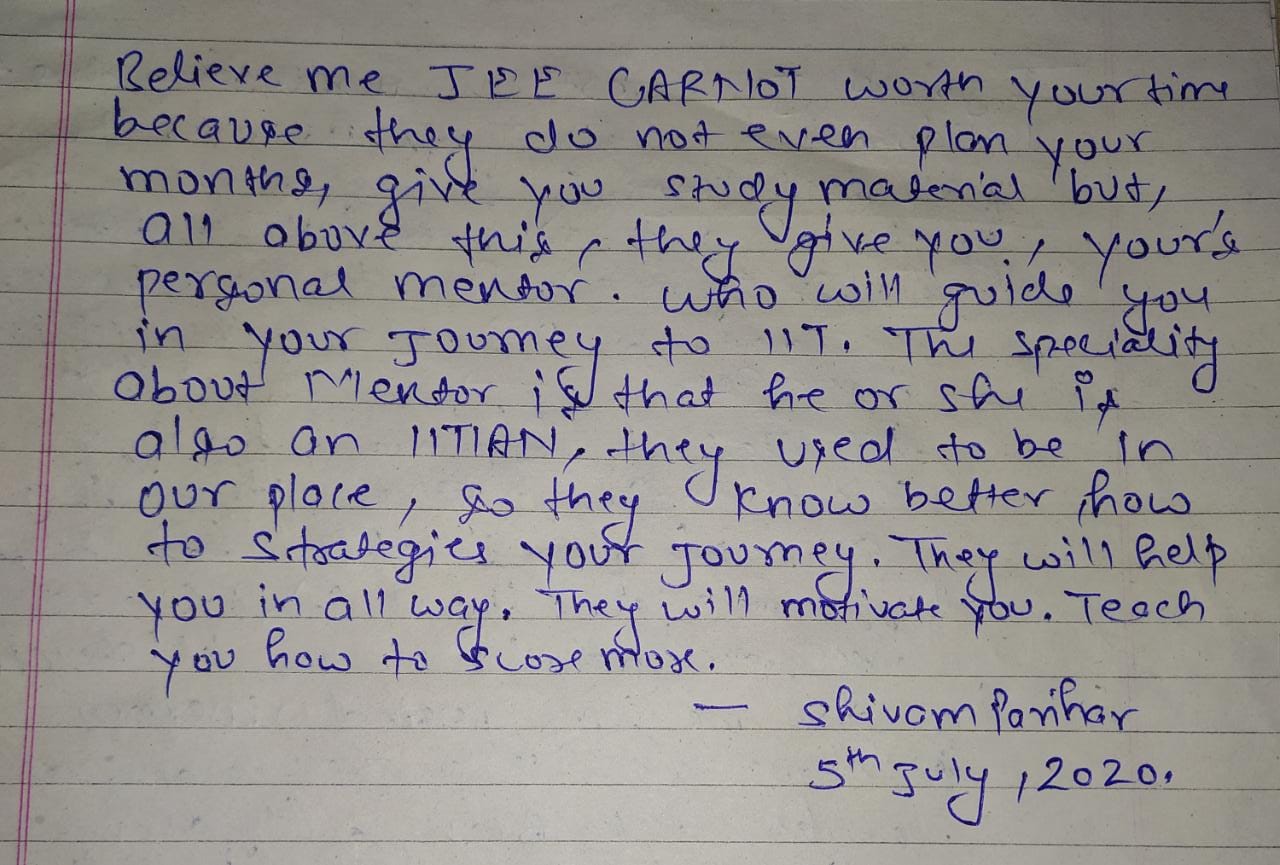 Believe me JEE CARNOT worth your time
because they do not even plan your
months, give you study material but,
all above this, they give you, your's
personal mentor. who will guide you
in your Journey to IIT. The speciality
about Mentor is that he or she is
also an IITIAN, they used to be in
our place, so they know better how
to strategies your journey. They will help
you in all way. They will motivate you. Teach
you how to score more.
— Shivam Parihar
5th July, 2020.